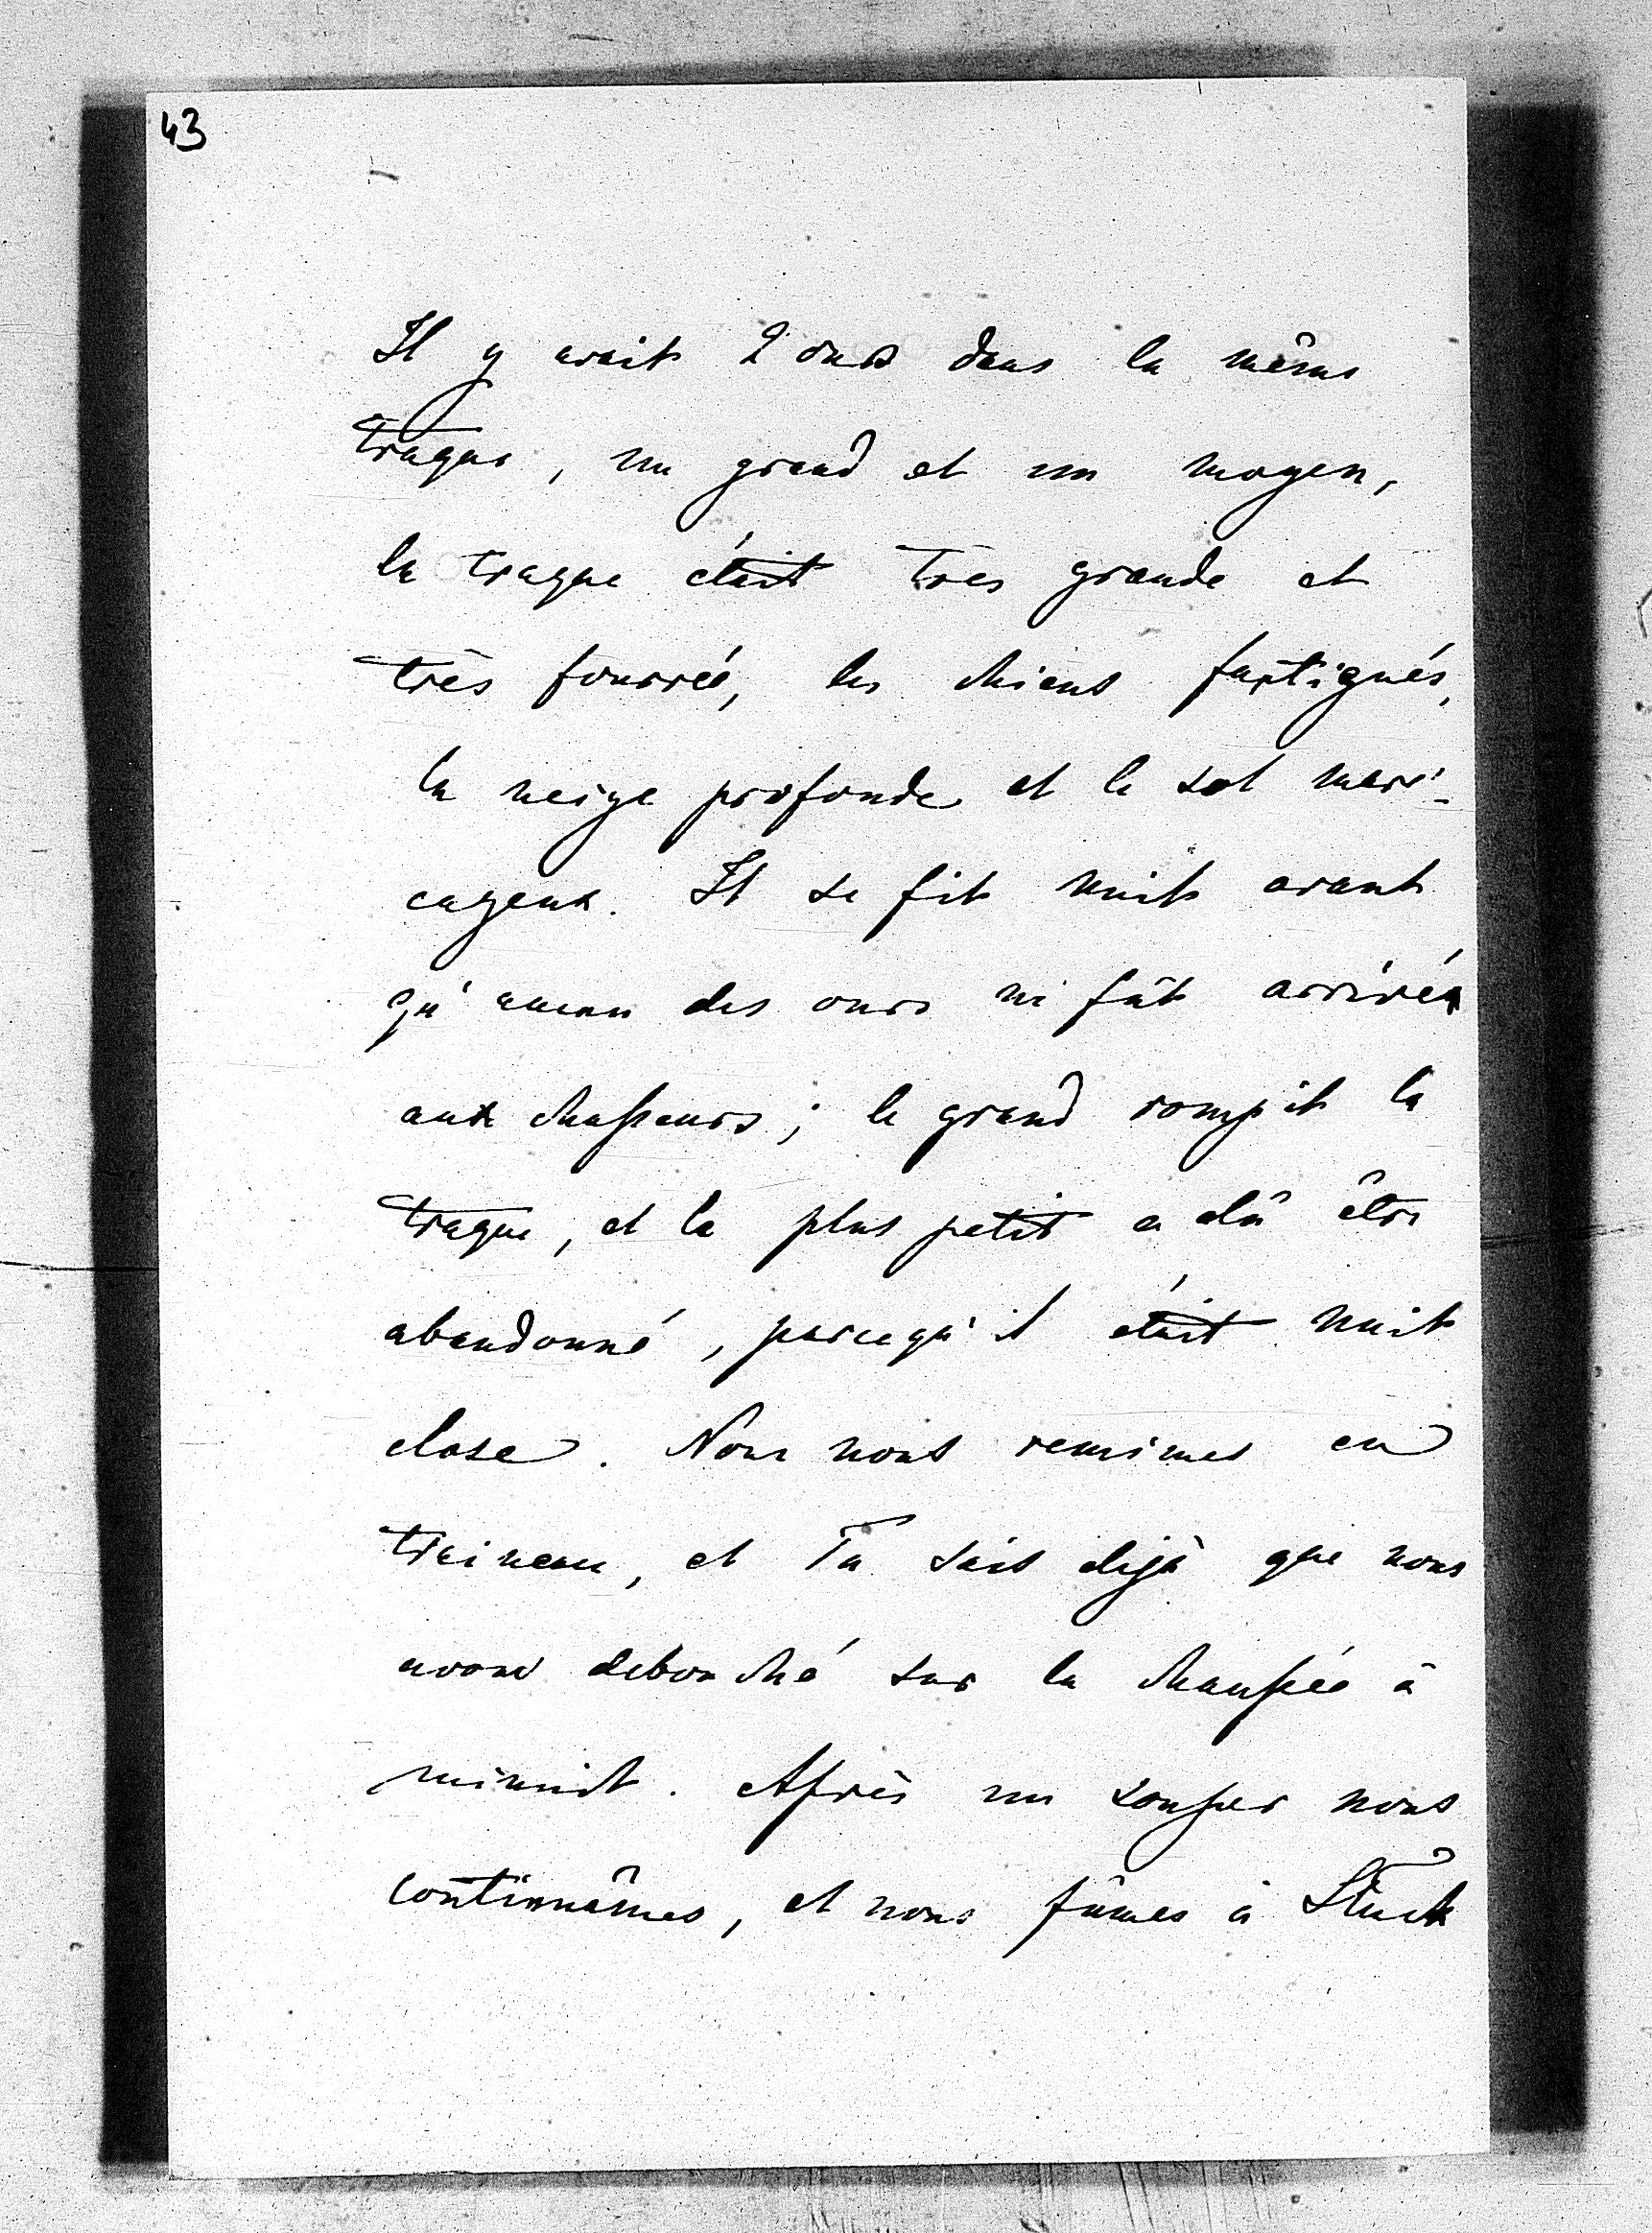 43
Il y avait 2 ours dans la même
traque, un grand et un moyen,
la traque était très grande et
très fourrée, les chiens fatigués,
la neige profonde et le sol maré-
cageux. Il se fit nuit avant
qu'aucun des ours ne fût arrivé
aux chasseurs; le grand rompit la
traque, et le plus petit a dû être
abandonné, parcequ'il était nuit
close. Nous nous remimes en
traineau, et Tu sais dejà que nous
avons debouché sur la chaussée à
minuit. Après un souper nous
continuâmes, et nous fûmes à